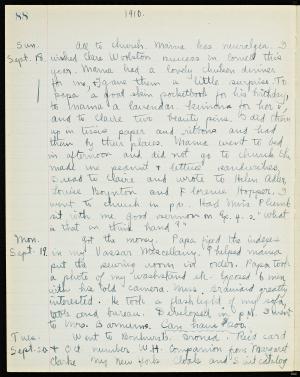 88 1910.
Sun. All to church. Mama has neuralgia. I
Sept. 18. wished Clare Wolston success in Cornell this
year. Mama had a lovely chicken dinner
for me, & I gave them a little surprise. To
papa a goat skin pocketbook for his birthday
to mama a lavendar kimona for her's,
and to Claire two beauty pins. I did them
up in tissue paper and ribbons and had
them by their places. Mama went to bed
in afternoon and did not go to church. She
made me peanut & lettuce sandwiches.
I read to Claire and wrote to Helen Adler,
Louise Boynton and Florence Hopper. I
went to church in p.m. Had Miss
sit with me. Good sermon on Ex. 4.2 "What
is that in thine hand?"
Mon. Got the money. Papa fixed the indexes
Sept. 19. in my Vassar Miscellany. I helped mama
put the sewing room in order. Papa took
a photo of my washstand etc. Exposed 6 min.
with his old camera. Miss Brainard greatly
interested. He took a flashlight of my sofa,
books and bureau. Developed in p.m. I went
to Mrs. Barnum's. Can have $200.
Tues. Went to Bonhurst. Droned. Paid card
Sept. 20. & Oct number W.H. Companion from Margaret
Clarke. My New York Cloak and Suit catalog